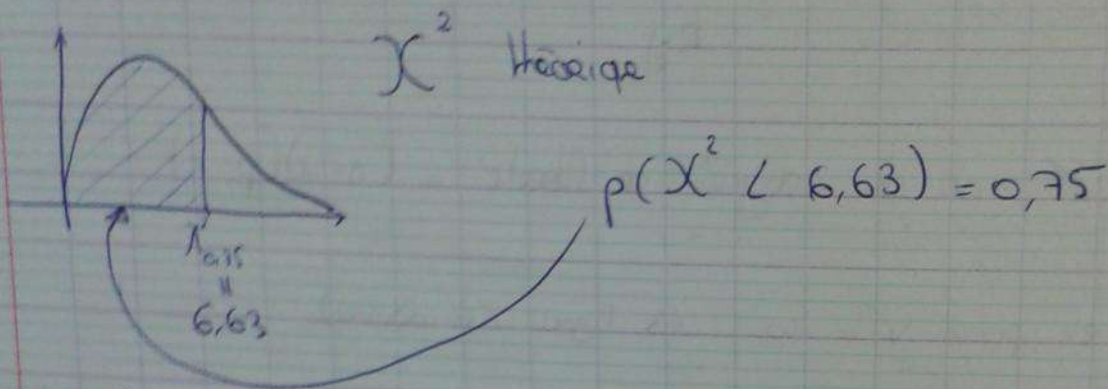 χ² théorique
p(χ² < 6,63) = 0,75
λ0,75
=
6,63